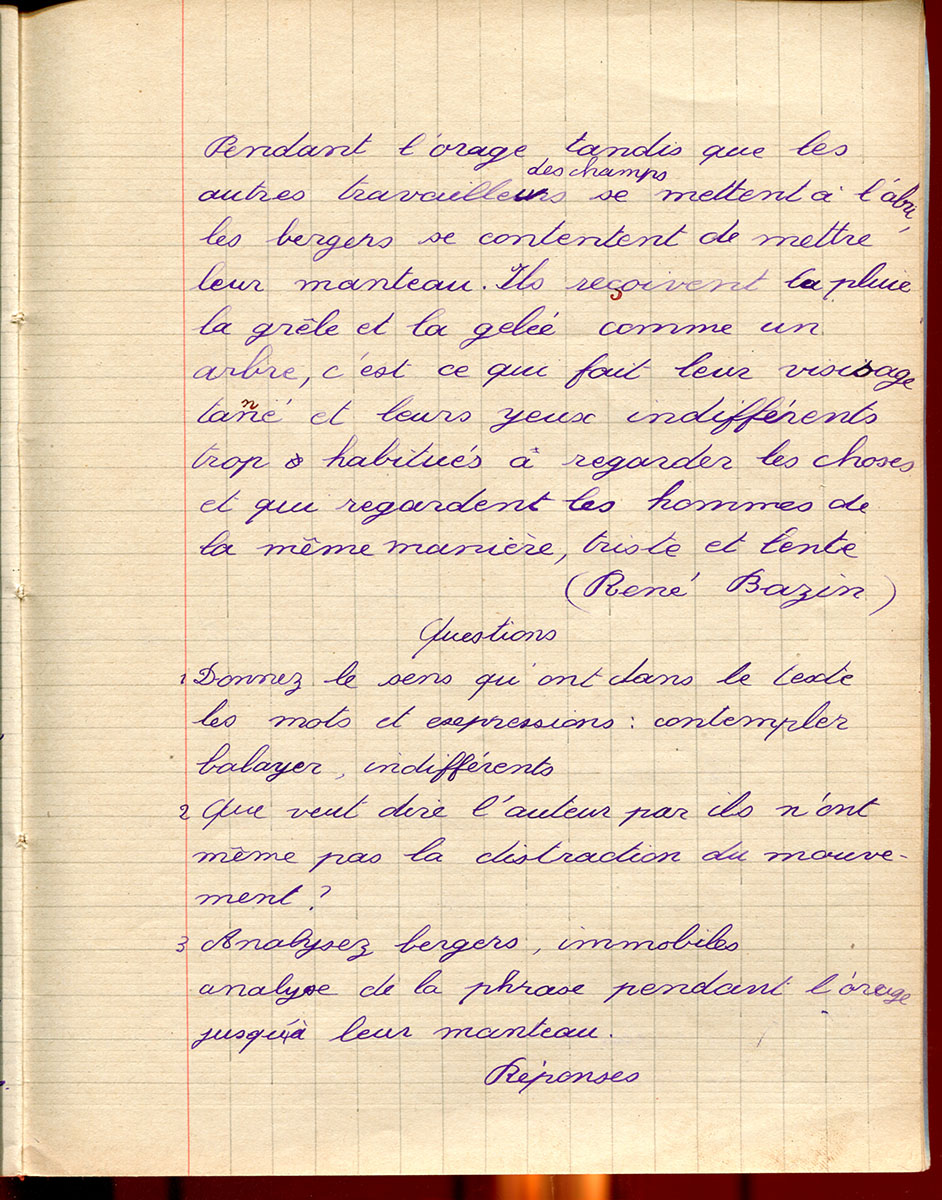 Pendant l'orage tandis que les
des champs
autres travailleurs se mettent à l'abri,
les bergers se contentent de mettre
leur manteau. Ils reçoivent la pluie
la grêle et la gelée comme un
arbre, c'est ce qui fait leur visisage
tanné et leurs yeux indifférents
trop habitués à regarder les choses
et qui regardent les hommes de
la même manière, triste et lente
(René Bazin)
Questions
1 Donnez le sens qu'ont dans le texte
les mots et expressions : contempler
balayer, indifférents
2 Que veut dire l'auteur par ils n'ont
même pas la distraction du mouve-
ment ?
3 Analysez bergers, immobiles
analyse de la phrase pendant l'orage
jusqu'à leur manteau.
Réponses